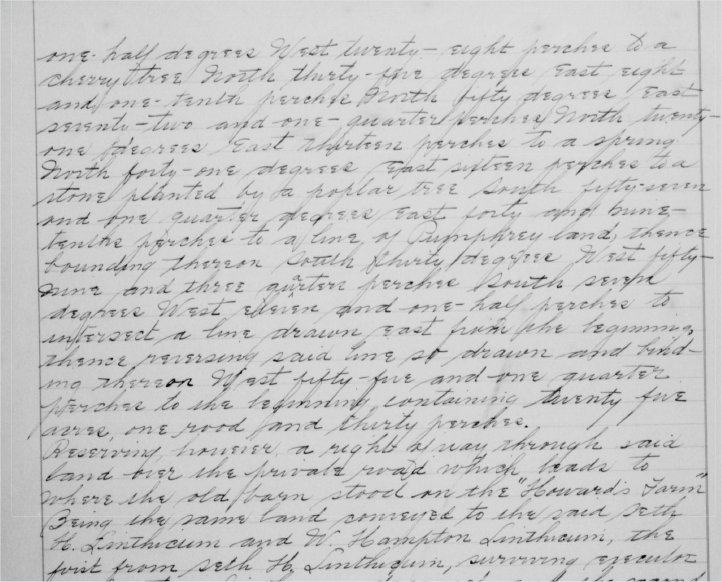 one-half degrees West twenty-eight perches to a
cherry tree North thirty-five degrees East eight
and one-tenth perches North fifty degrees East
seventy-two and one-quarter perches North twenty-
one degrees East thirteen perches to a spring
North forty-one degrees East sixteen perches to a
stone planted by a poplar tree South fifty-seven
and one quarter degrees East forty and nine-
tenths perches to a line of Pumphrey land; thence
bounding thereon South thirty degrees West fifty-
nine and three quarters perches South seven
degrees West eleven and one-half perches to
intersect a line drawn East from the beginning,
thence reversing said line so drawn and bind-
ing thereon West fifty-five and one quarter
perches to the beginning containing twenty five
acres, one rood and thirty perches.
Reserving, however a right of way through said
land over the private road which leads to
where the old barn stood on the "Howard's Farm"
Being the same land conveyed to the said Seth
H. Linthicum and W. Hampton Linthicum, the
first from Seth H. Linthicum, surviving executor